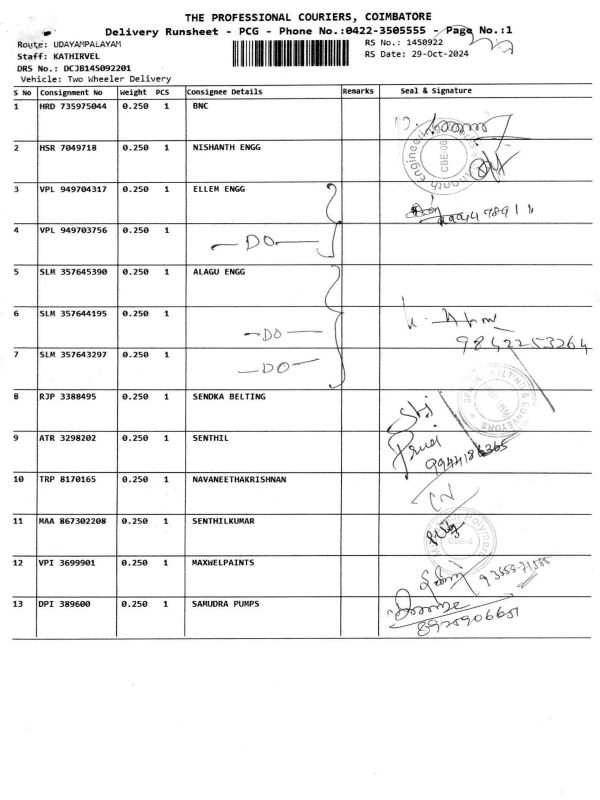 THE PROFESSIONAL COURIERS, COIMBATORE
Delivery Runsheet - PCG - Phone No.:0422-3505555 - Page No.:1
Route: UDAYAMPALAYAM
RS No.: 1450922
Staff: KATHIRVEL
RS Date: 29-Oct-2024
DRS No.: DCJB145092201
Vehicle: Two Wheeler Delivery
S No Consignment No Weight PCS Consignee Details Remarks Seal & Signature
1 HRD 735975044 0.250 1 BNC
2 HSR 7049718 0.250 1 NISHANTH ENGG
CBE-06
3 VPL 949704317 0.250 1 ELLEM ENGG
4 VPL 949703756 0.250 1
—DO—
5 SLM 357645390 0.250 1 ALAGU ENGG
6 SLM 357644195 0.250 1
—DO—
9842253264
7 SLM 357643297 0.250 1
—DO—
8 RJP 3388495 0.250 1 SENDKA BELTING
BELTING & CONVEYORS
9 ATR 3298202 0.250 1 SENTHIL
10 TRP 8170165 0.250 1 NAVANEETHAKRISHNAN
11 MAA 867302208 0.250 1 SENTHILKUMAR
12 VPI 3699901 0.250 1 MAXWELPAINTS
13 DPI 389600 0.250 1 SAMUDRA PUMPS